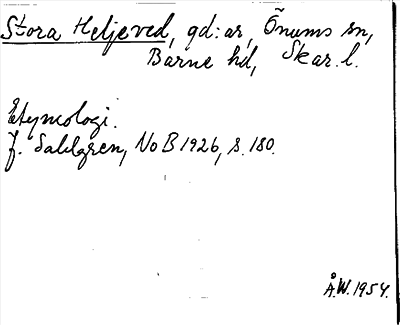 Stora Heljeved, gd:ar, Önums sn,
Barne hd, Skar. l.
Etymologi.
J. Sahlgren, NoB 1926, s. 180.
Å.W. 1954.